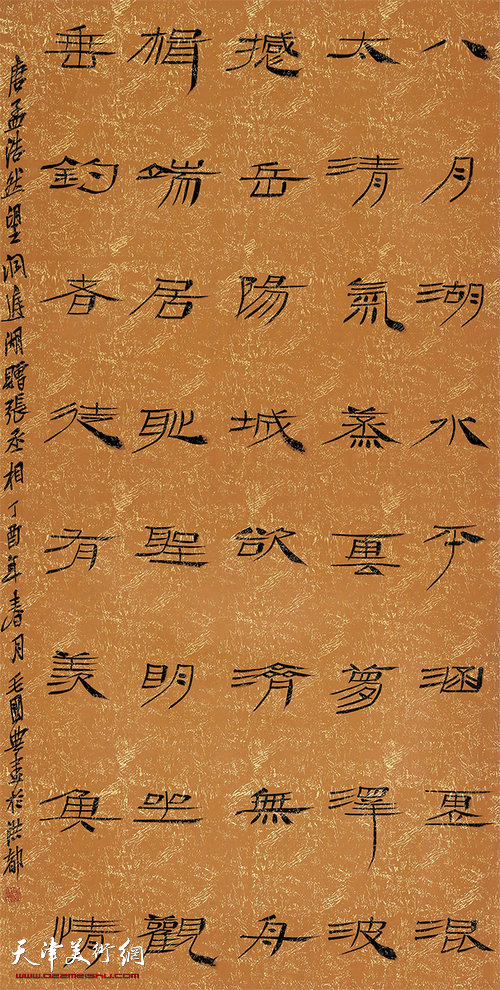 八月湖水平涵虛混
太清氣蒸雲夢澤波
撼岳陽城欲濟無舟
楫端居耻聖明坐觀
垂釣者徒有羨魚情
唐孟浩然望洞庭湖贈張丞相丁酉年春月毛國典書於洪都
天津美術網
www.022meishu.com